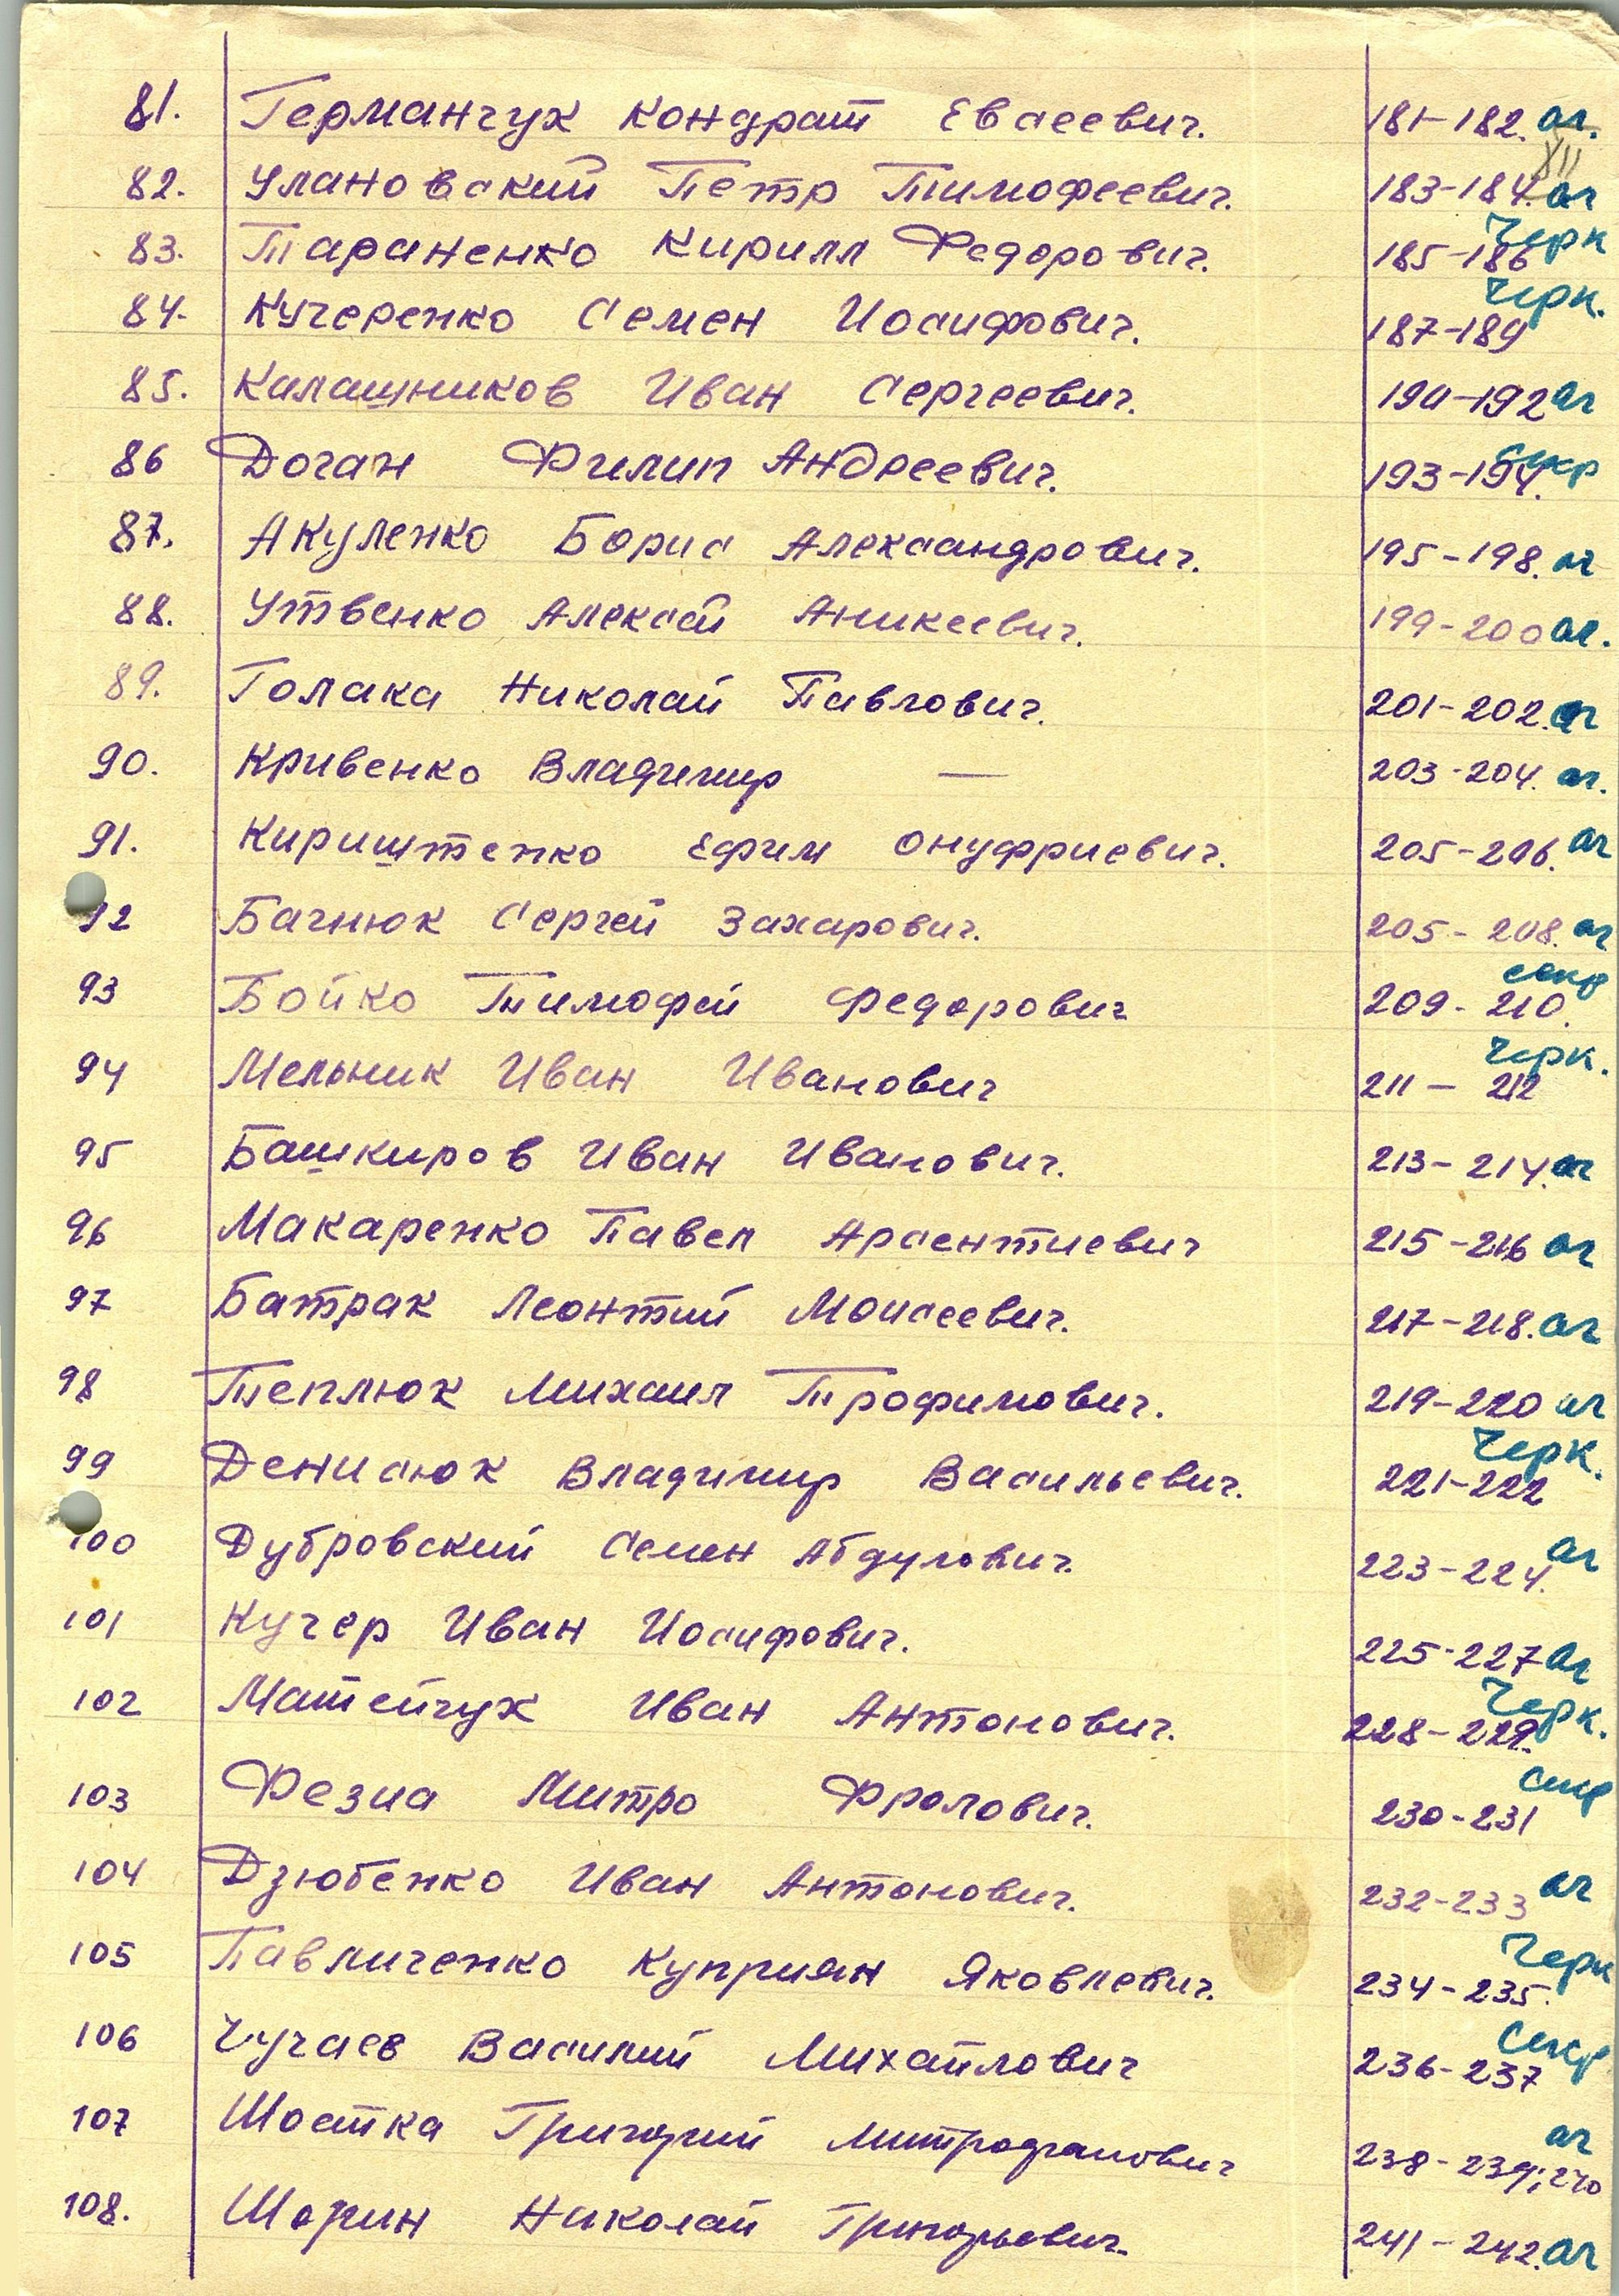 81. Германчук Кондрат Евсеевич. 181-182. аг.
82. Улановский Петр Тимофеевич. 183-184. аг
83. Тараненко Кирилл Федорович. 185-186 Черк
84. Кучеренко Семен Иосифович. 187-189 Черк.
85. Калашников Иван Сергеевич. 190-192 аг
86 Доган Филип Андреевич. 193-194.
87. Акуленко Борис Александрович. 195-198. аг
88. Утвенко Алексей Аникеевич. 199-200 аг.
89. Голака Николай Павлович. 201-202. аг
90. Кривенко Владимир — 203-204. аг.
91. Кириштенко Ефим Онуфриевич. 205-206. аг
92 Багнюк Сергей Захарович. 205-208. аг
93 Бойко Тимофей Федорович 209-210. секр
94 Мельник Иван Иванович 211-212 Черк.
95 Башкиров Иван Иванович. 213-214. аг
96 Макаренко Павел Арсентиевич 215-216 аг
97 Батрак Леонтий Моисеевич. 217-218. аг
98 Теплюк Михаил Трофимович. 219-220 аг
99 Денисюк Владимир Васильевич. 221-222 Черк.
100 Дубровский Семен Абдулович. 223-224. аг
101 Кучер Иван Иосифович. 225-227 аг
102 Матейчук Иван Антонович. 228-229. Черк.
103 Фезиа Митро Фролович. 230-231 секр
104 Дзюбенко Иван Антонович. 232-233 аг
105 Павличенко Куприян Яковлевич. 234-235. Черк
106 Чучаев Василий Михайлович 236-237 секр
107 Шостка Григорий Митрофанович 238-239; 240 аг
108. Шорин Николай Григорьевич. 241-242. аг